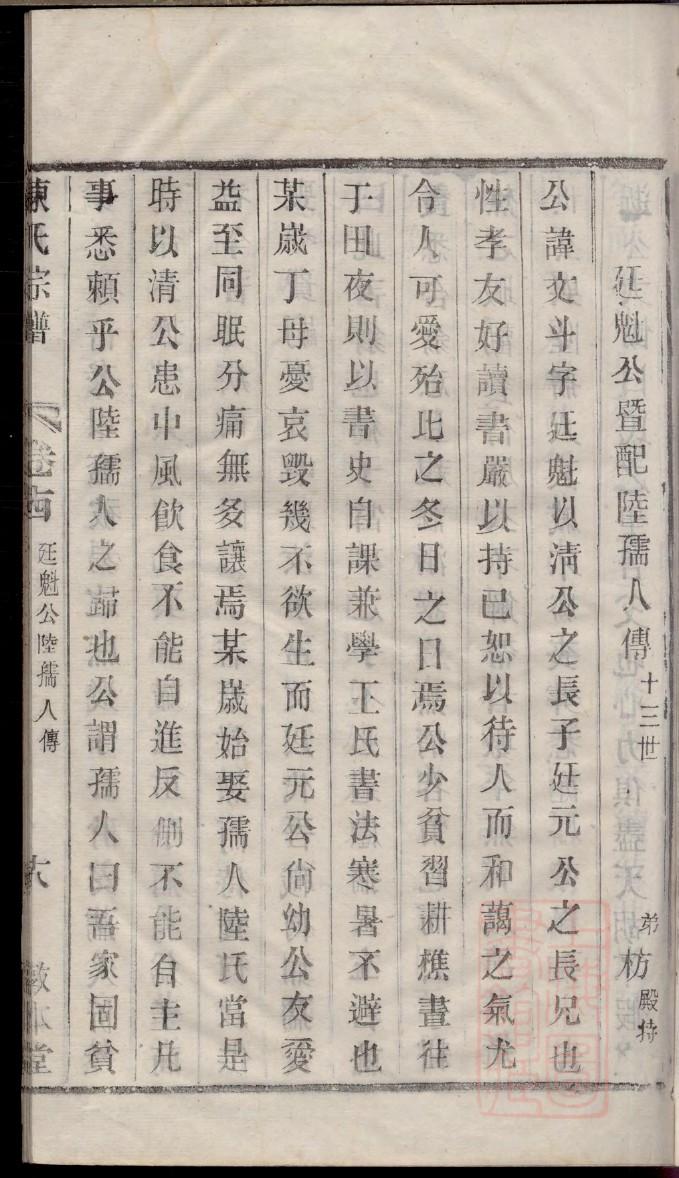 廷魁公暨配陸孺人傳 十三世 弟枋殿持
公諱文斗字廷魁以清公之長子廷元公之長兄也
性孝友好讀書嚴以持已恕以待人而和藹之氣尤
令人可愛殆比之冬日之日焉公少貧習耕樵晝往
于田夜則以書史自課兼學王氏書法寒暑不避也
某歲丁母憂哀毀幾不欲生而廷元公尙幼公友愛
益至同眠分痛無多讓焉某歲始娶孺人陸氏當是
時以清公患中風飲食不能自進反側不能自主凡
事悉賴乎公陸孺人之歸也公謂孺人曰吾家固貧
陳氏宗譜 卷十四 廷魁公陸孺人傳 六 敦本堂